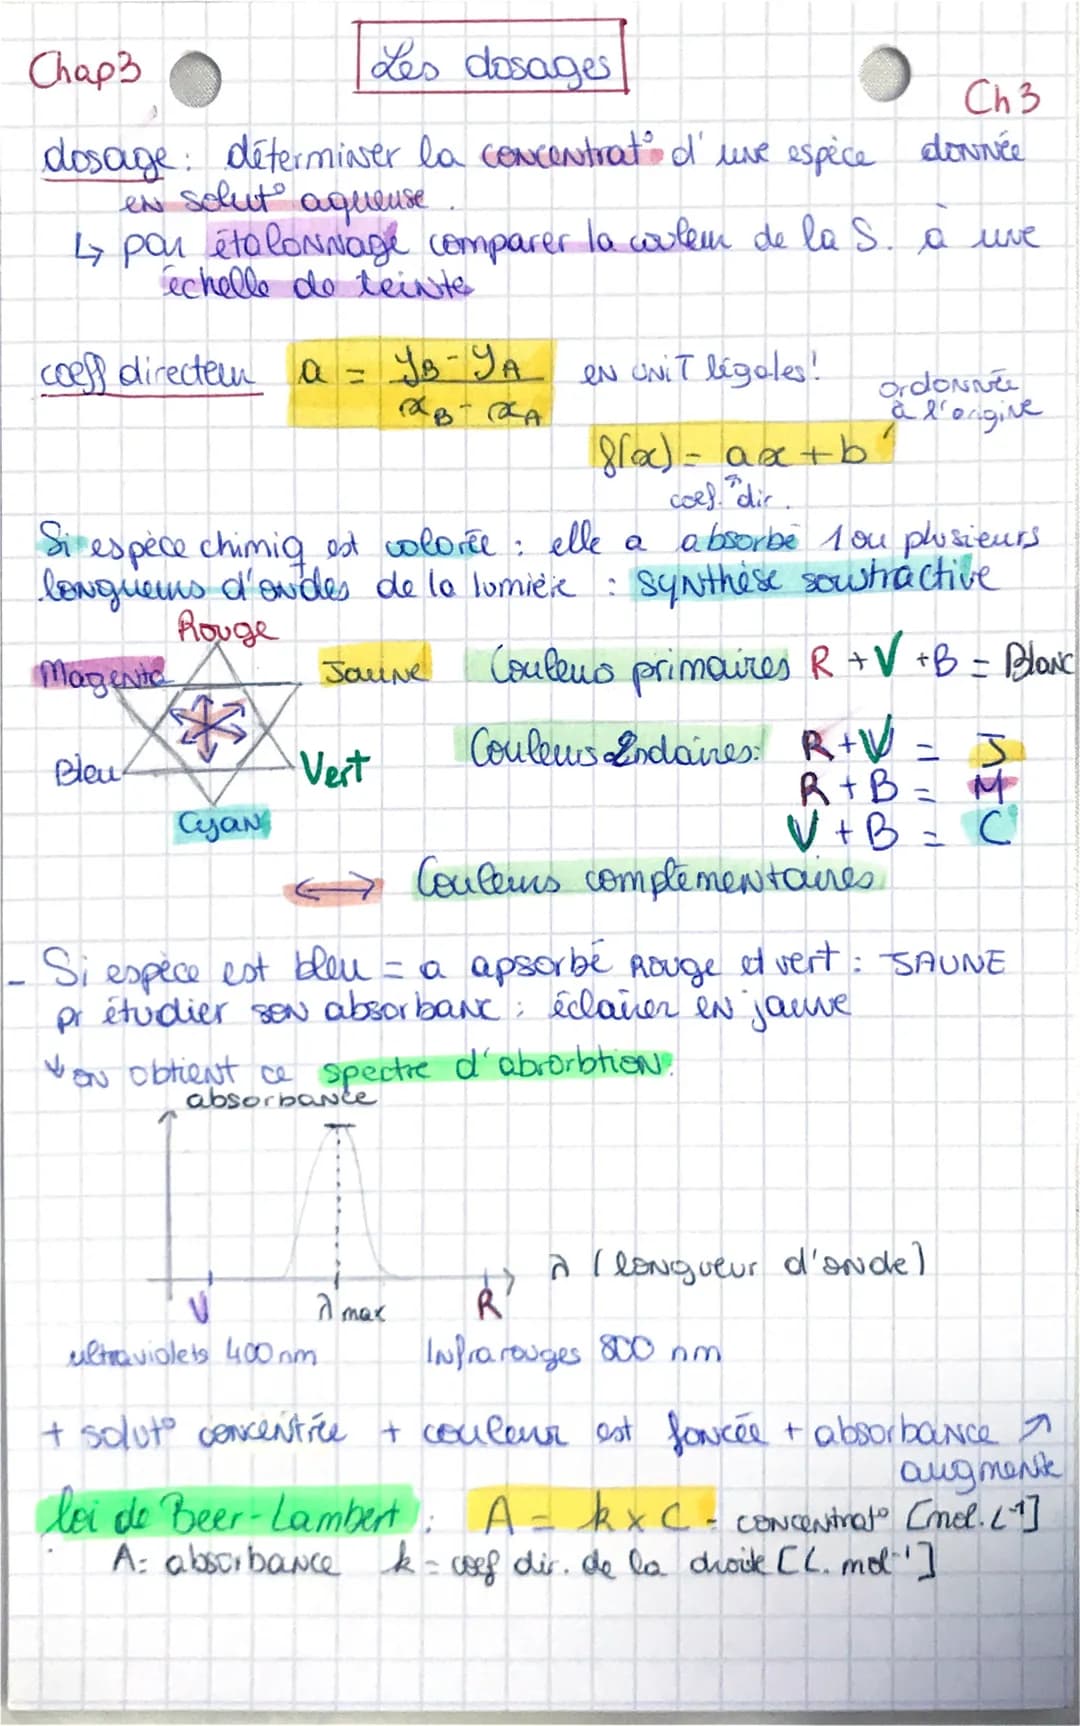 Chap3
Les dosages
Ch 3
dosage : déterminer la concentrat° d'une espèce donnée
en solut° aqueuse.
↳ par étalonnage comparer la couleur de la S. à une
échelle de teinte
coeff directeur a = yB - yA / xB - xA en UNIT légales!
ordonnée
à l'origine
f(x) = ax + b
coef. dir.
Si espèce chimiq est colorée : elle a absorbé 1 ou plusieurs
longueurs d'ondes de la lumière : synthèse soustractive
Rouge
Magenta
Jaune
Bleu
Vert
Cyan
Couleurs primaires R + V + B = Blanc
Couleurs 2ndaires: R + V = J
R + B = M
V + B = C
↔ Couleurs complémentaires
- Si espèce est bleu = a apsorbé Rouge et vert : JAUNE
pr étudier son absorbanc : éclairer en jaune
↓ on obtient ce spectre d'abrorbtion.
absorbance
λ (longueur d'onde)
V
λ max
R
ultraviolets 400 nm
Infrarouges 800 nm
+ solut° concentrée + couleur est foncée + absorbance ↗
augmente
loi de Beer-Lambert : A = k x C - concentrat° [mol.L-1]
A = absorbance k = coef dir. de la droite [L. mol-1]